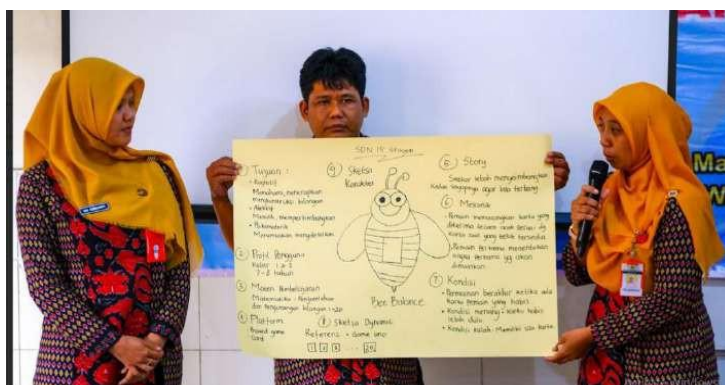 SDN 15 Sragen
① Tujuan :
• Kognitif
Memahami, menerapkan
mengkonstruksi bilangan
• Afektif
Menarik, mempertimbangkan
• Psikomotorik
② Profil Pengguna
Kelas 1 & 2
7-8 tahun
③ Materi Pembelajaran
Matematika : Penjumlahan
dan Pengurangan bilangan 1-20
④ Platform
Board game
Card
⑨ Sketsa
Karakter
Bee Balance
⑧ Sketsa Dynamic
Referensi : Game uno
⑤ Story
Seekor lebah menyeimbangkan
kedua sayapnya agar bisa terbang
⑥ Mekanik
- Pemain memasangkan kartu yang
diterima secara acak sesuai dg
kartu soal yang telah tersedia
- Pemain pertama menentukan
angka pertama yg akan
dimainkan
⑦ Kondisi
• Permainan berakhir ketika ada
kartu pemain yang habis
• Kondisi menang : kartu habis
lebih dulu
• Kondisi kalah : Memiliki sisa kartu